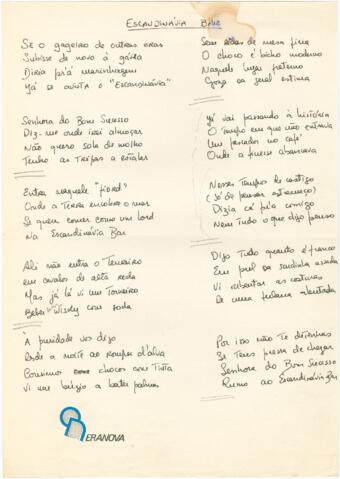 ESCANDINÁVIA BAR
Se o gageiro de outras eras
Subisse de novo à gávea
Diria prá marinhagem
Já se avista o "Escandinávia"
Senhora do Bom Sucesso
Diz-me onde irei almoçar
Não quero sola de molho
Tenho as tripas a estalar
Entra naquele "fiord"
Onde a terra envolve o mar
Se queres comer como um lord
Na Escandinávia Bar
Ali não entra o Tenreiro
em cavalos de alta roda
Mas já lá vi um Toneiro
Beber Wisky com soda
À puridade vos digo
Desde a noite ao romper d'alva
Comemos choco com tinta
Vi um burgês a bater palmas
ERANOVA
Sem de mesa fina
O choco é bicho moderno
Naquele lugar fraterno
Goza da geral estima
Já vai passando à história
O tempo em que não entrava
Um pescador no café
Onde a finesse abancava
Nesses tempos de castigo
(Só de pensar estremeço)
Dizia cá p'la comigo
Nem tudo o que digo penso
Digo tudo quanto é franco
Em prol da sardinha assada
Vi rebentar as costuras
De uma pessoa
Por isso não te detenhas
Se tens pressa de chegar
Senhora do Bom Sucesso
Rumo ao Escandinávia Bar